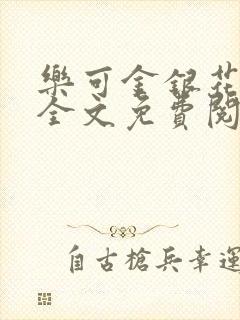 樂可金銀花
全文免費閱
自古槍兵幸運